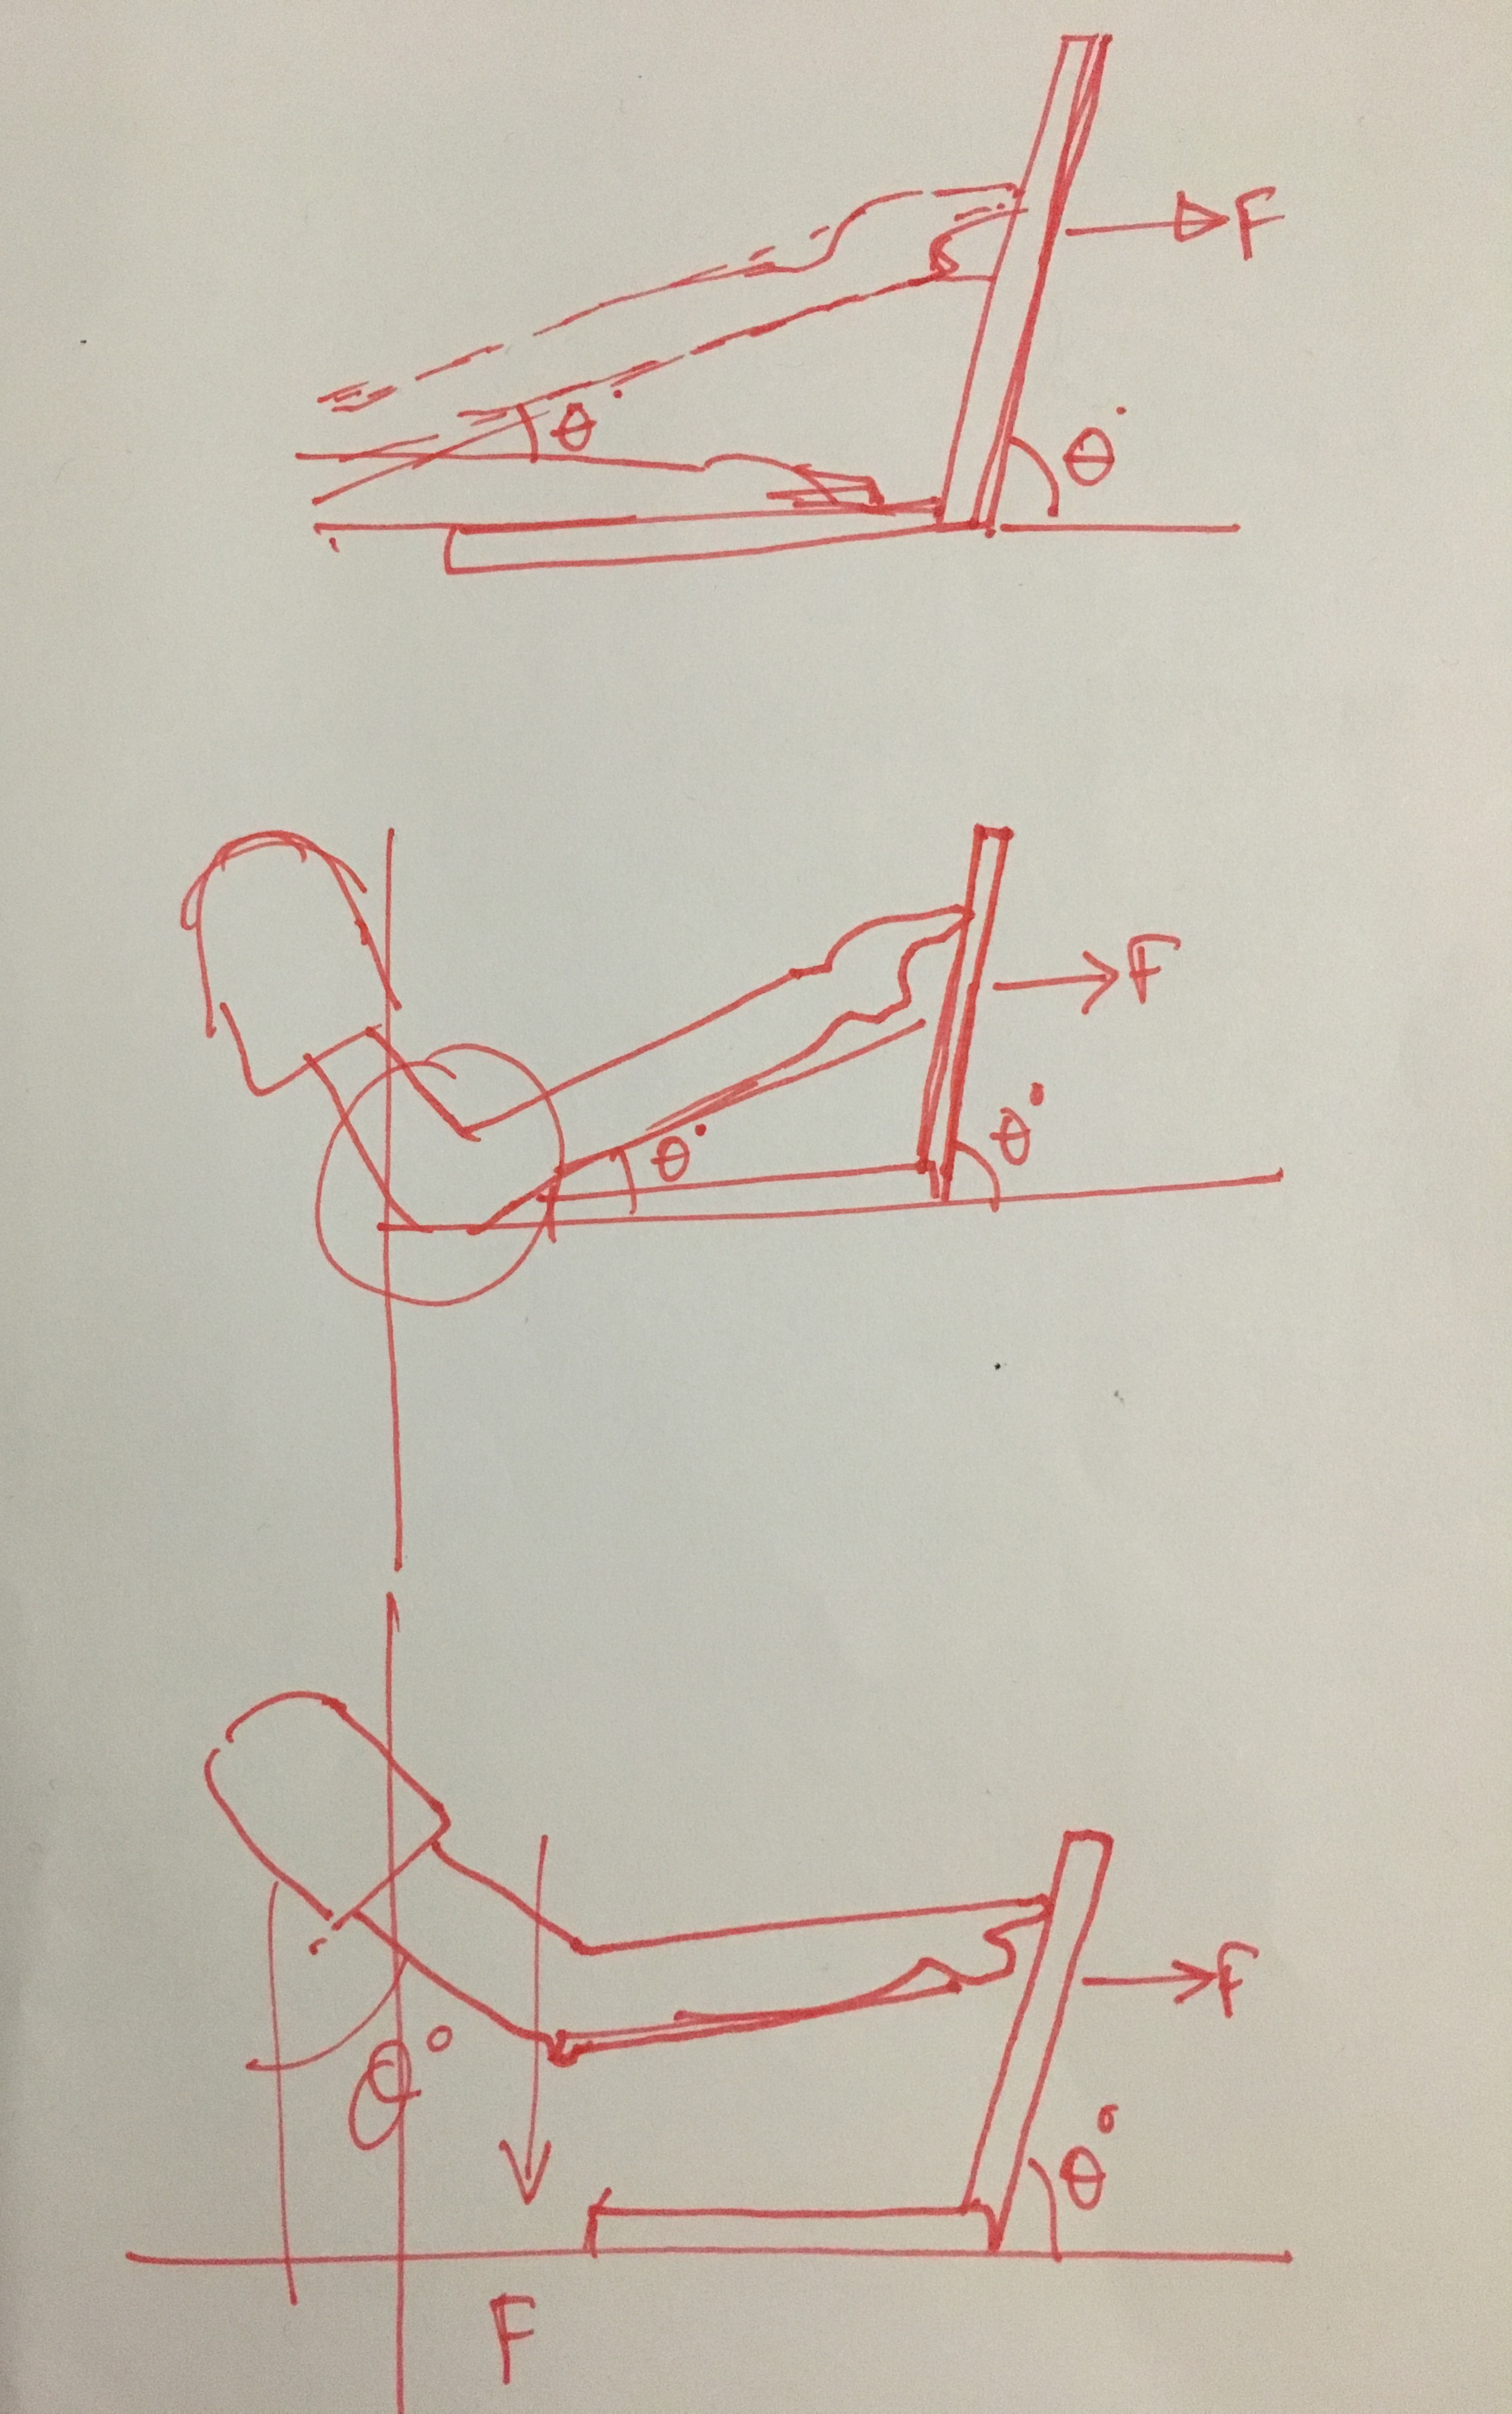 F
θ°
θ°
F
θ°
θ°
F
θ°
θ°
F